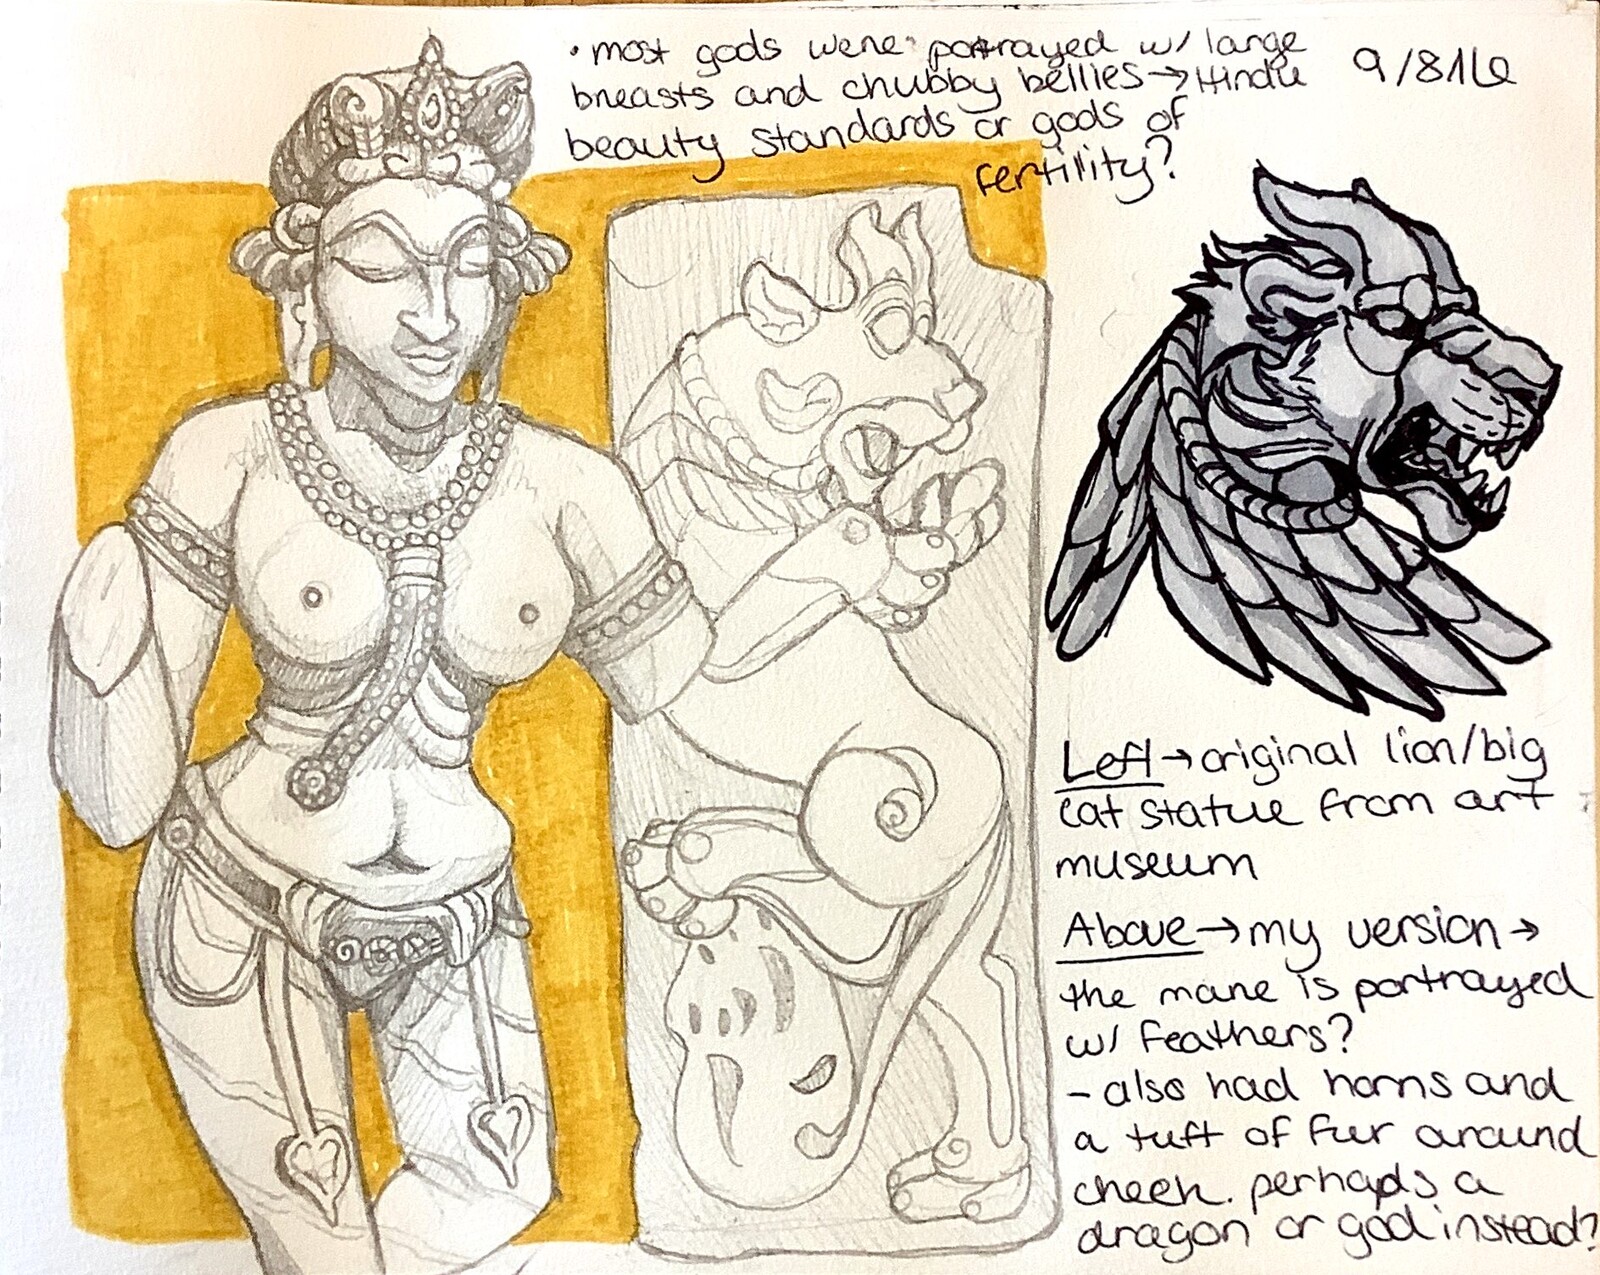 • most gods were portrayed w/ large
breasts and chubby bellies → Hindu
beauty standards or gods of
fertility?
9/8/16
Left → original lion/big
cat statue from art
museum
Above → my version →
the mane is portrayed
w/ feathers?
- also had horns and
a tuft of fur around
cheek. perhaps a
dragon or god instead?